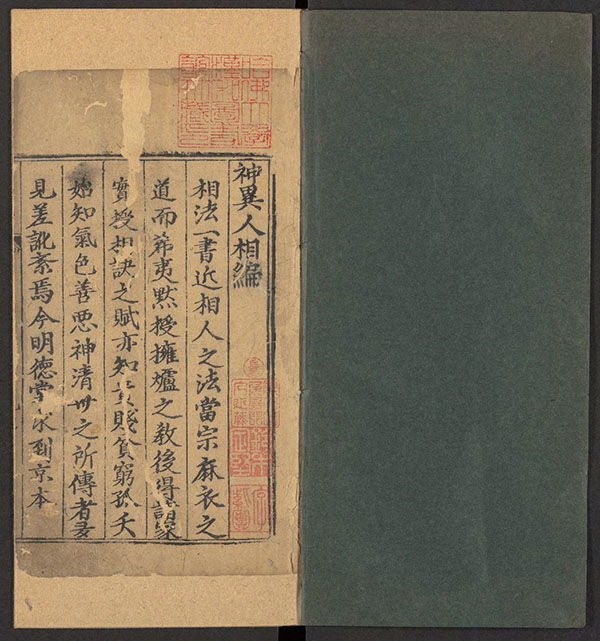 哈佛大學
漢和圖書
館珍藏印
神異人相編
相法一書近相人之法當宗麻衣之
道而希夷黙授擁爐之教後得
實授相訣之賦亦知貴賤貧窮孤夭
始知氣色善惡神清丗之所傳者
見差訛紊焉今明德堂求到京本